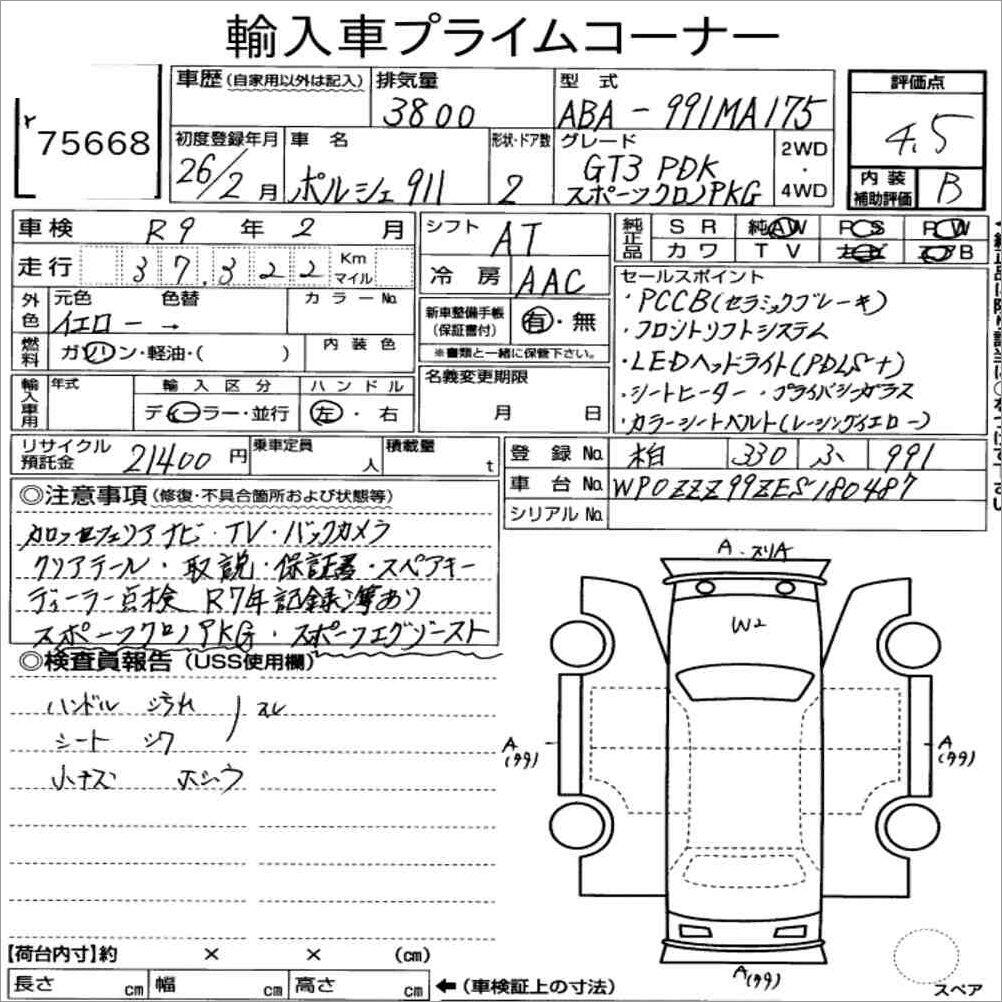 輸入車プライムコーナー
75668
車歴(自家用以外は記入)
排気量
3800
型式
ABA-991MA175
評価点
4.5
内装
補助評価
B
初度登録年月
26/2月
車名
ポルシェ911
形状・ドア数
2
グレード
GT3 PDK
スポーツクロノPKG
2WD
・
4WD
車検
R9年2月
走行
37,322
Km
マイル
シフト
AT
冷房
AAC
純正品
SR 純AW PS PW
カワ TV ナビ エアB
外色
元色
イエロー
色替
→
カラーNo.
燃料
ガソリン・軽油・( )
内装色
新車整備手帳
(保証書付)
有・無
※書類と一緒に保管下さい。
セールスポイント
・PCCB(セラミックブレーキ)
・フロントリフトシステム
・LEDヘッドライト(PDLS+)
・シートヒーター・プライバシーガラス
・カラーシートベルト(レーシングイエロー)
輸入車用
年式
輸入区分
ディーラー・並行
ハンドル
左・右
名義変更期限
月 日
リサイクル
預託金
21400円
乗車定員
人
積載量
t
登録No.
柏 330 ふ 991
車台No.
WP0ZZZ99ZES180487
シリアルNo.
◎注意事項(修復・不具合箇所および状態等)
カロッツェリアナビ・TV・バックカメラ
クリアテール・取説・保証書・スペアキー
ディーラー点検 R7年記録簿あり
スポーツクロノPKG・スポーツエグゾースト
◎検査員報告(USS使用欄)
ハンドル 汚れ スレ
シート シワ
小キズ
A・スリA
W2
A
(99)
A
(99)
A(99)
【荷台内寸】約 × × (cm)
長さ cm 幅 cm 高さ cm
←(車検証上の寸法)
スペア